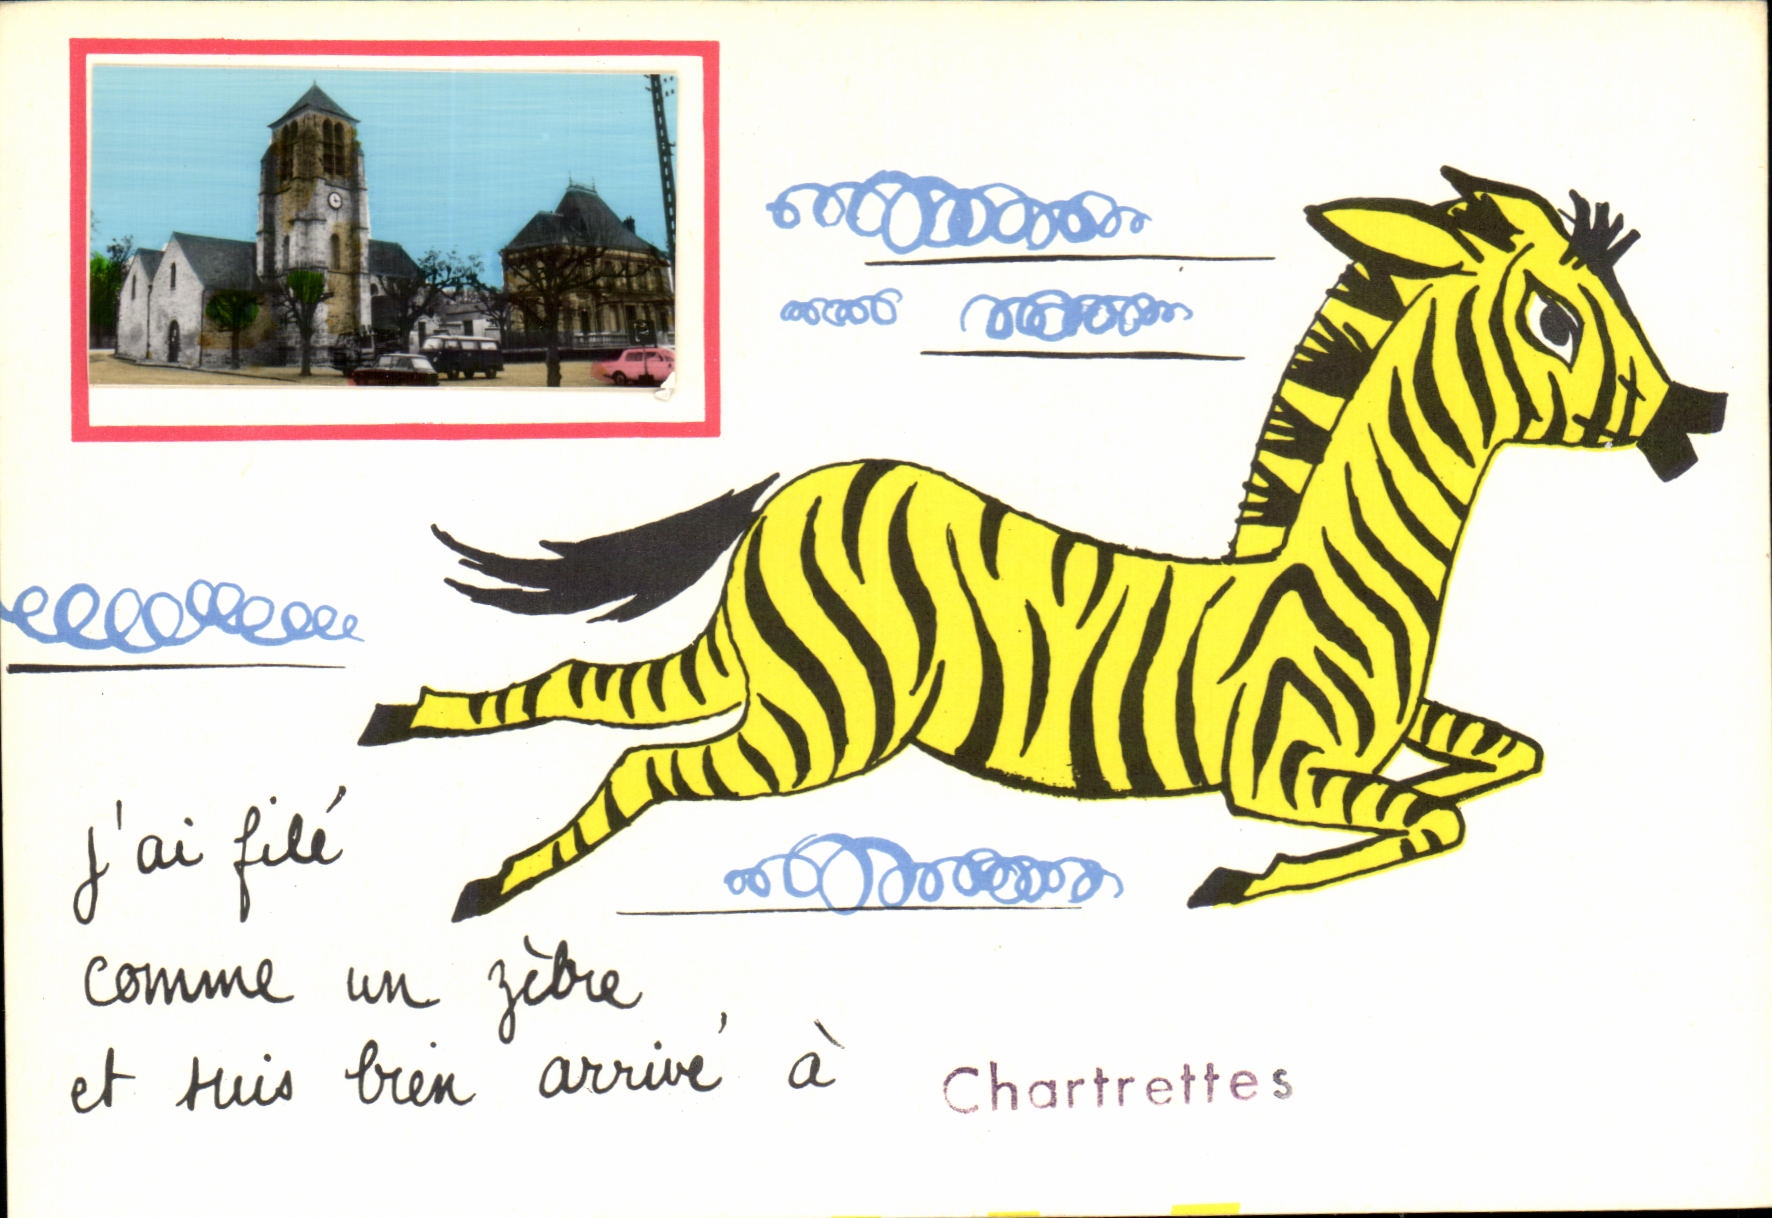 j'ai filé
comme un zèbre
et suis bien arrivé à Chartrettes